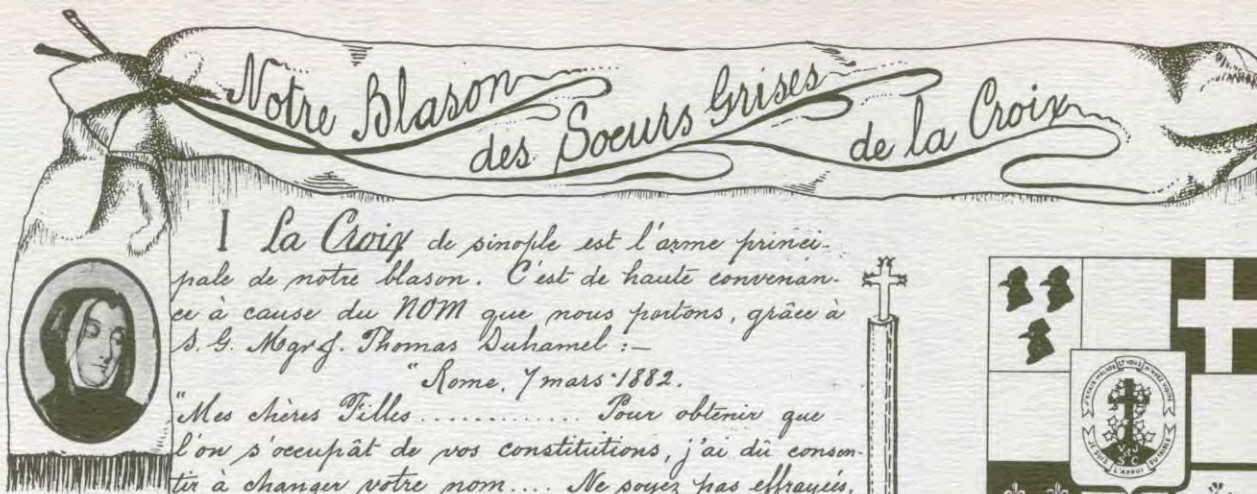 Notre Blason des Soeurs Grises de la Croix
I La Croix de sinople est l'arme princi-
pale de notre blason. C'est de haute convenan-
ce à cause du NOM que nous portons, grâce à
S. G. Mgr J. Thomas Duhamel :—
"Rome, 7 mars 1882.
"Mes chères Filles ............. Pour obtenir que
l'on s'occupât de vos constitutions, j'ai dû consen-
tir à changer votre nom.... Ne soyez pas effrayées,
J'ÉTAIS MALADE ET VOUS M'AVEZ VISITÉ
JE SUIS L'APPUI
S C